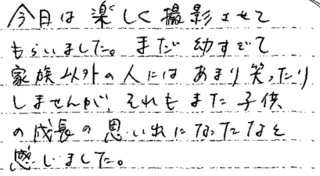 今日は楽しく撮影させて
もらいました。まだ幼すぎて
家族以外の人にはあまり笑ったり
しませんが、それもまた子供
の成長の思い出になったなと
感じました。